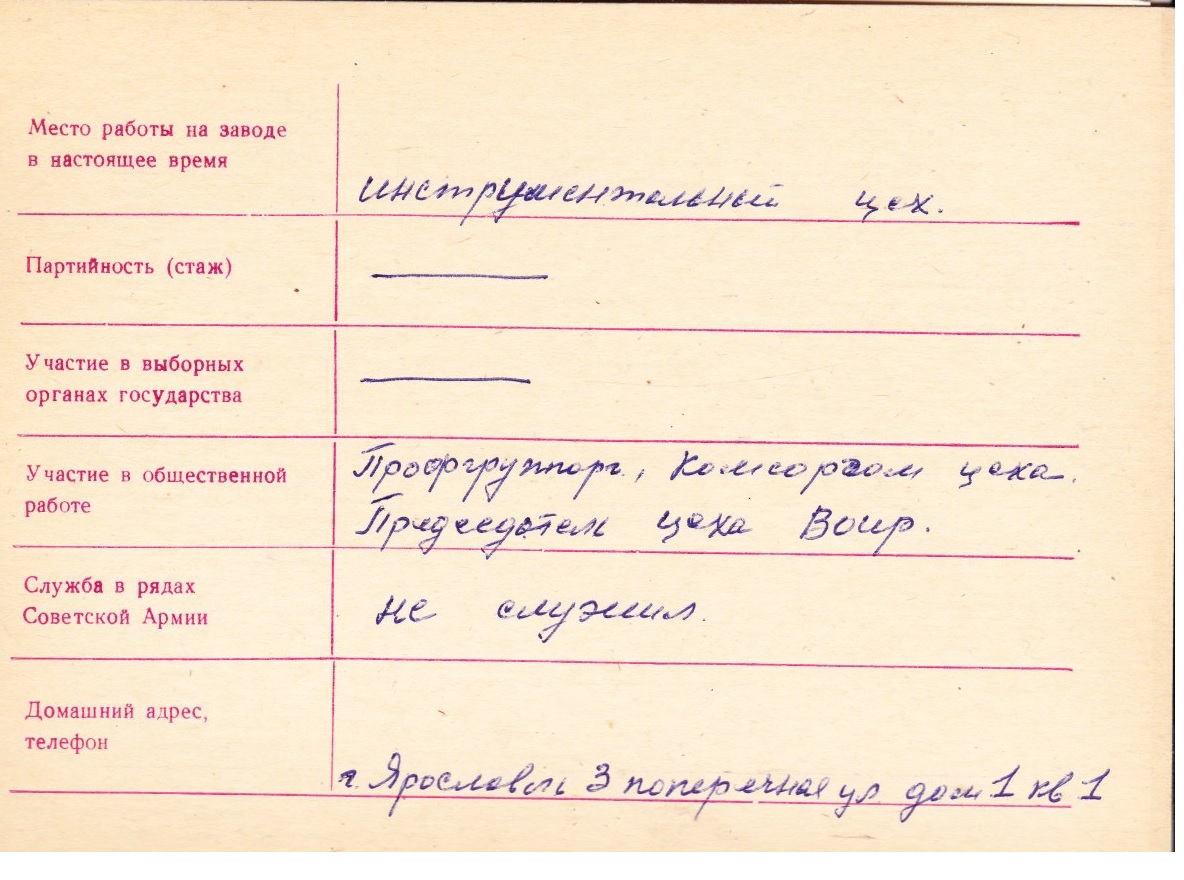 Место работы на заводе
в настоящее время
инструментальный цех.
Партийность (стаж)
Участие в выборных
органах государства
Участие в общественной
работе
Профгруппорг, Комсоргом цеха.
Председатель цеха Воир.
Служба в рядах
Советской Армии
не служил.
Домашний адрес,
телефон
г. Ярославль 3 поперечная ул дом 1 кв 1